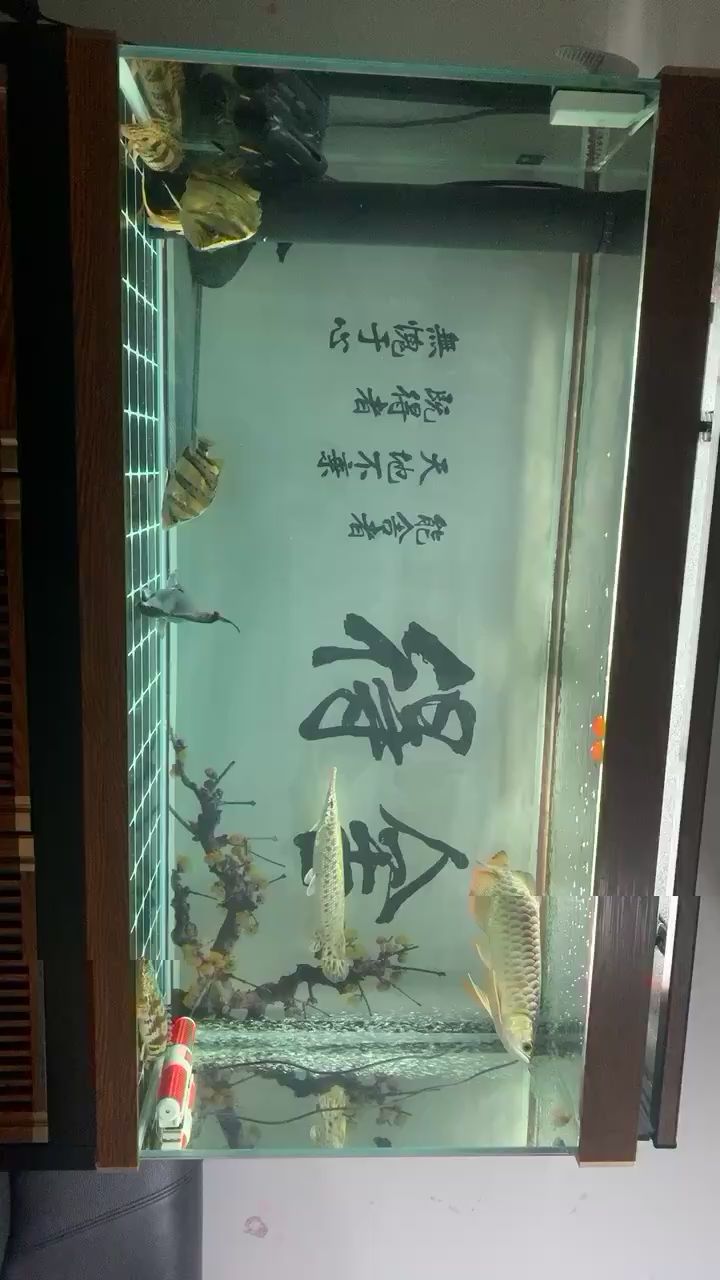 舍得
能舍者
天地不棄
既得者
無愧于心